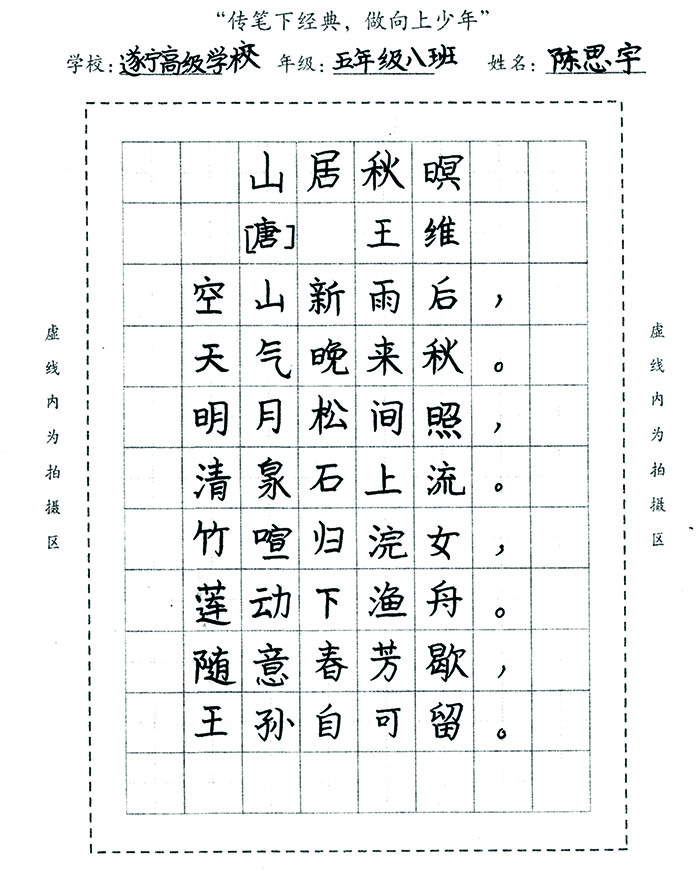 “传笔下经典，做向上少年”
学校：遂宁高级学校 年级：五年级八班 姓名：陈思宇
山居秋暝
[唐] 王维
空山新雨后，
天气晚来秋。
明月松间照，
清泉石上流。
竹喧归浣女，
莲动下渔舟。
随意春芳歇，
王孙自可留。
虚线内为拍摄区
虚线内为拍摄区